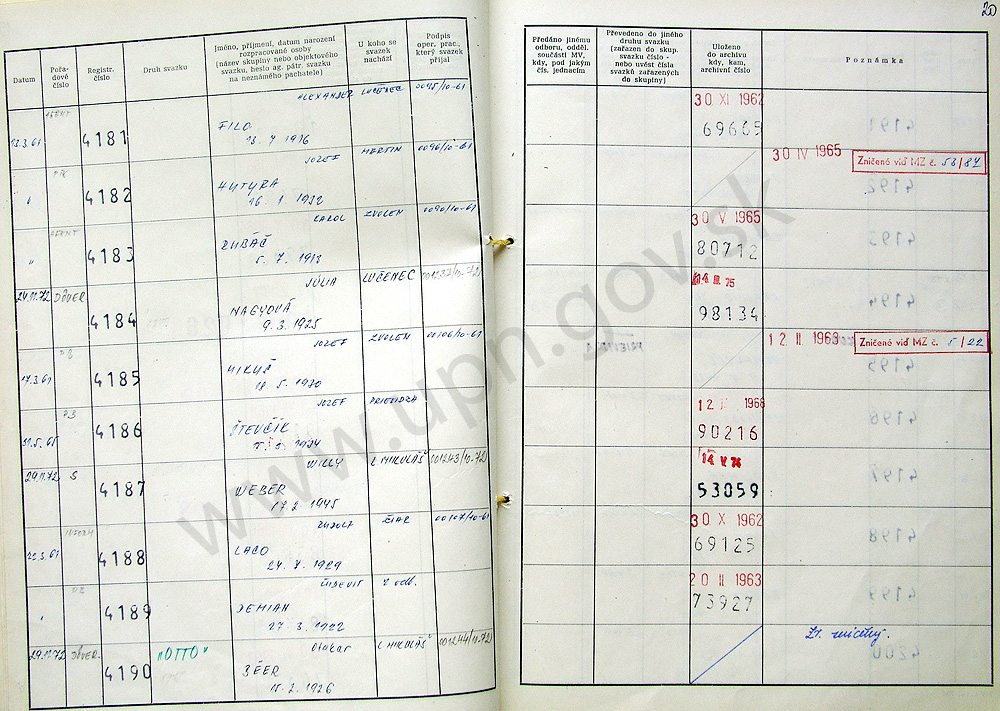 20
Datum
Pořadové číslo
Registr. číslo
Druh svazku
Jméno, příjmení, datum narození
rozpracované osoby
(název skupiny nebo objektového
svazku, heslo ag. pátr. svazku
na neznámého pachatele)
U koho se
svazek
nachází
Podpis
oper. prac.,
který svazek
přijal
Předáno jinému
odboru, odděl.
součásti MV,
kdy, pod jakým
čís. jednacím
Převedeno do jiného
druhu svazku
(zařazen do skup.
svazku číslo -
nebo uvést čísla
svazků zařazených
do skupiny)
Uloženo
do archivu
kdy, kam,
archivní číslo
Poznámka
ALEXANDER LUČENEC 0095/10-61
AGENT
13.3.61 4181 FILO
30 XI 1962
69665
JOZEF MARTIN 0096/10-61
4182 HUTYRA
16. 1. 1932
30 IV 1965 Zničené viď MZ č. 58/87
KAROL ZVOLEN 0090/10-61
AGENT
" 4183 ZUBÁČ
5. 7. 1913
30 V 1965
80712
JÚLIA LUČENEC 001237/10-72
24.11.72 DÔVER
4184 NAGYOVÁ
9. 3. 1925
14 III 75
98134
JOZEF ZVOLEN 00106/10-61
17.3.61 4185 MIKUŠ
12 II 1963 Zničené viď MZ č. 5/22
JOZEF PRIEVIDZA
PB
4186 ŠTEVČÍK
90216
WILLY L MIKULÁŠ 001243/10-72
29.11.72 S
4187 WEBER
17. 2. 1945
14 V 74
53059
RUDOLF ŽIAR 00107/10-61
INFORM
4188 LACO
30 X 1962
69125
ĽUDEVIT 2 odb.
4189 DEMIAN
27. 3. 1922
20 II 1963
73927
Otakar L MIKULÁŠ 001244/10-72
29.11.72 DÔVER. "OTTO"
4190 BÉER
15. 2. 1926
www.upn.gov.sk